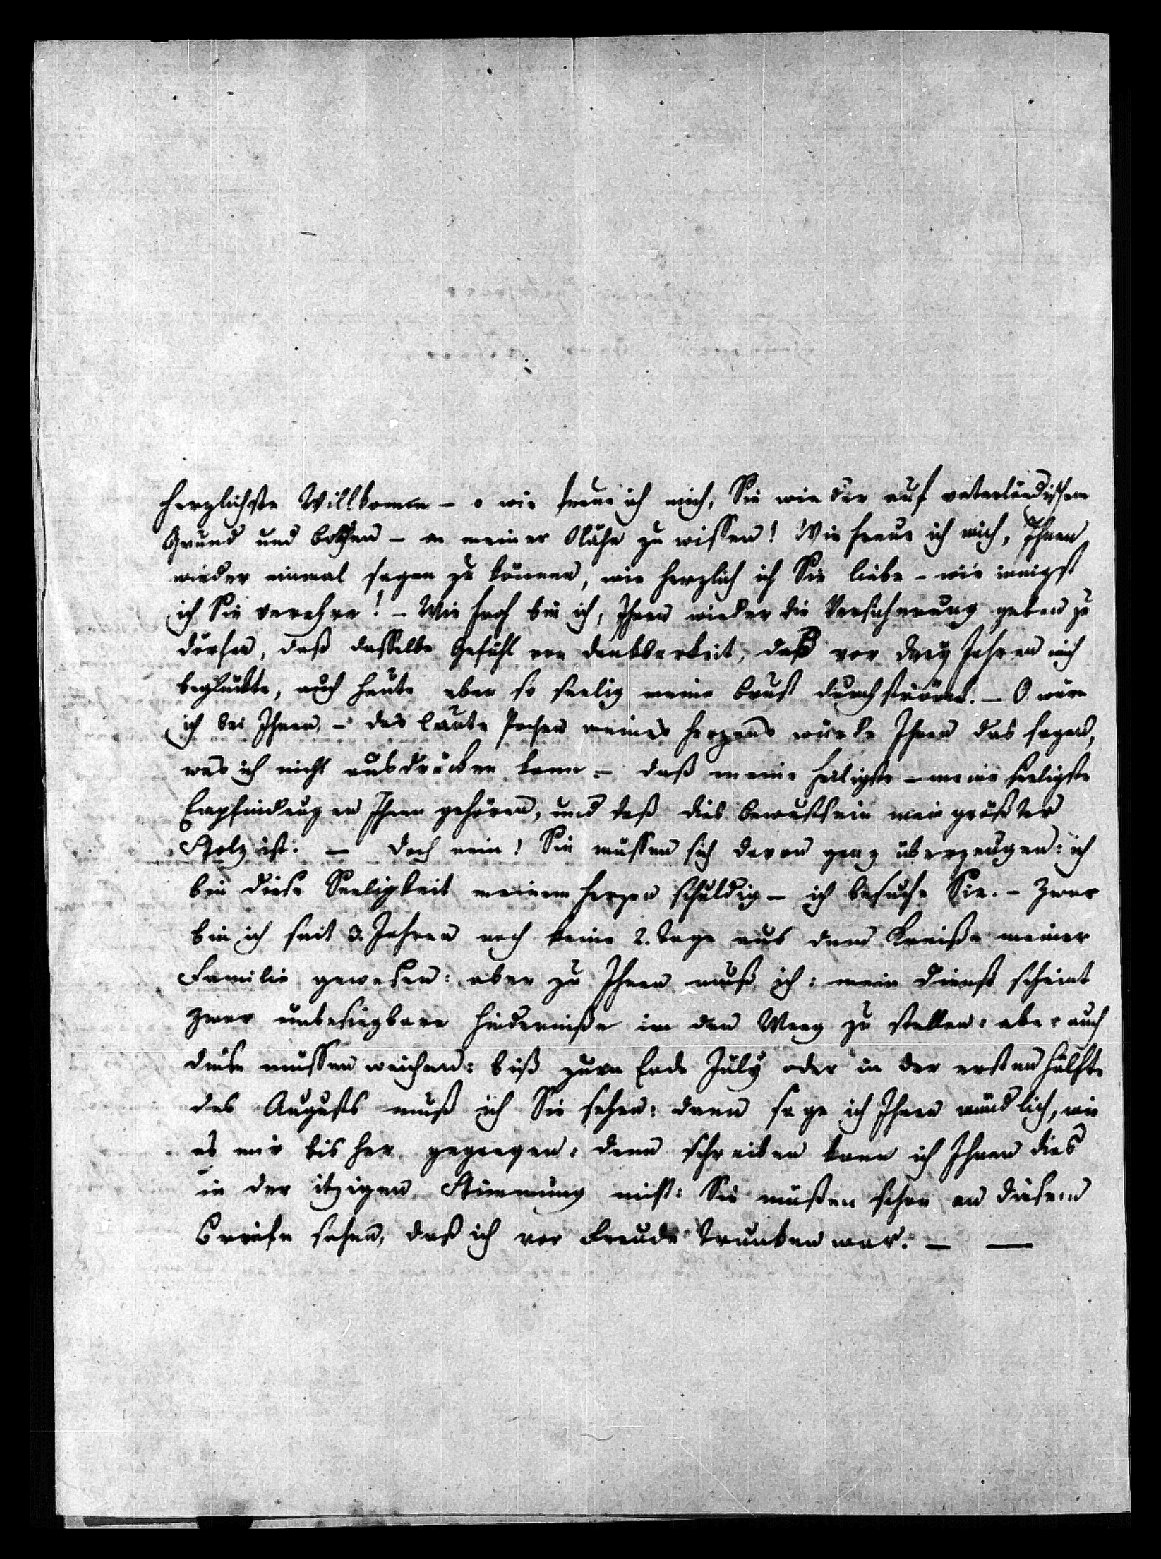 Herzlichste Willkomm – o wie freue ich mich, Sie wieder auf vaterländischem
Grund und bothen – in meiner Nähe zu wissen! Wie freue ich mich, Ihnen
wieder einmal sagen zu können, wie herzlich ich Sie liebe – wie innigst
ich Sie verehre! – Wie froh bin ich, Ihnen wieder die Versicherung geben zu
dörfen, daß dasselbe Gefühl von dankbarkeit, daß vor drey Jahren mich
beglückte, auch heute eben so seelig meine brust durchströmt. – O wäre
ich bei Ihnen – das laute Pochen meines herzens würde Ihnen das sagen,
was ich nicht ausdrücken kann – daß meine heiligste – meine seeligste
Empfindungen Ihnen gehören, und daß dies bewustsein mein größter
Stolz ist. – doch nein! Sie müssen sich davon ganz überzeugen: ich
bin diese Seeligkeit meinem herzen schuldig – ich besuche Sie. – Zwar
bin ich seit 3. Jahren noch keine 2. Tage aus dem Kreiße meiner
Familie gewesen: aber zu Ihnen muß ich: mein dienst scheint
zwar unbesiegbare hinderniße in den Weeg zu stellen: aber auch
diese müssen weichen: biß zum Ende July oder in der ersten hälfte
des Augusts muß ich Sie sehen: dann sage ich Ihnen mündlich, wie
es mir bisher gegangen: denn schreiben kann ich Ihnen dies
in der itzigen Stimmung nicht: Sie müßen schon an diesem
briefe sehen, daß ich vor Freude trunken war. – —